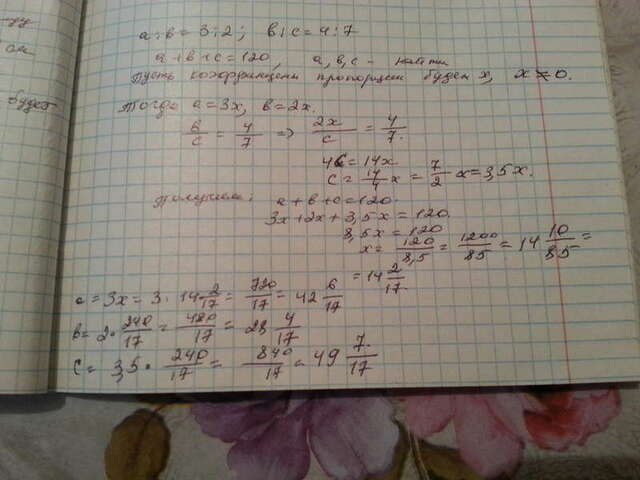 a : b = 3 : 2 ; b : c = 4 : 7
a + b + c = 120, a, b, c – найти
Пусть коэффициент пропорции будет x, x ≠ 0.
Тогда a = 3x, b = 2x.
b/c = 4/7 => 2x/c = 4/7.
4c = 14x
c = 14/4 x = 7/2 x = 3,5x.
Получаем: a + b + c = 120.
3x + 2x + 3,5x = 120.
8,5x = 120
x = 120/8,5 = 1200/85 = 14 10/85 =
= 14 2/17.
a = 3x = 3 · 14 2/17 = 720/17 = 42 6/17
b = 2 · 240/17 = 480/17 = 28 4/17
c = 3,5 · 240/17 = 840/17 = 49 7/17
ом
будет